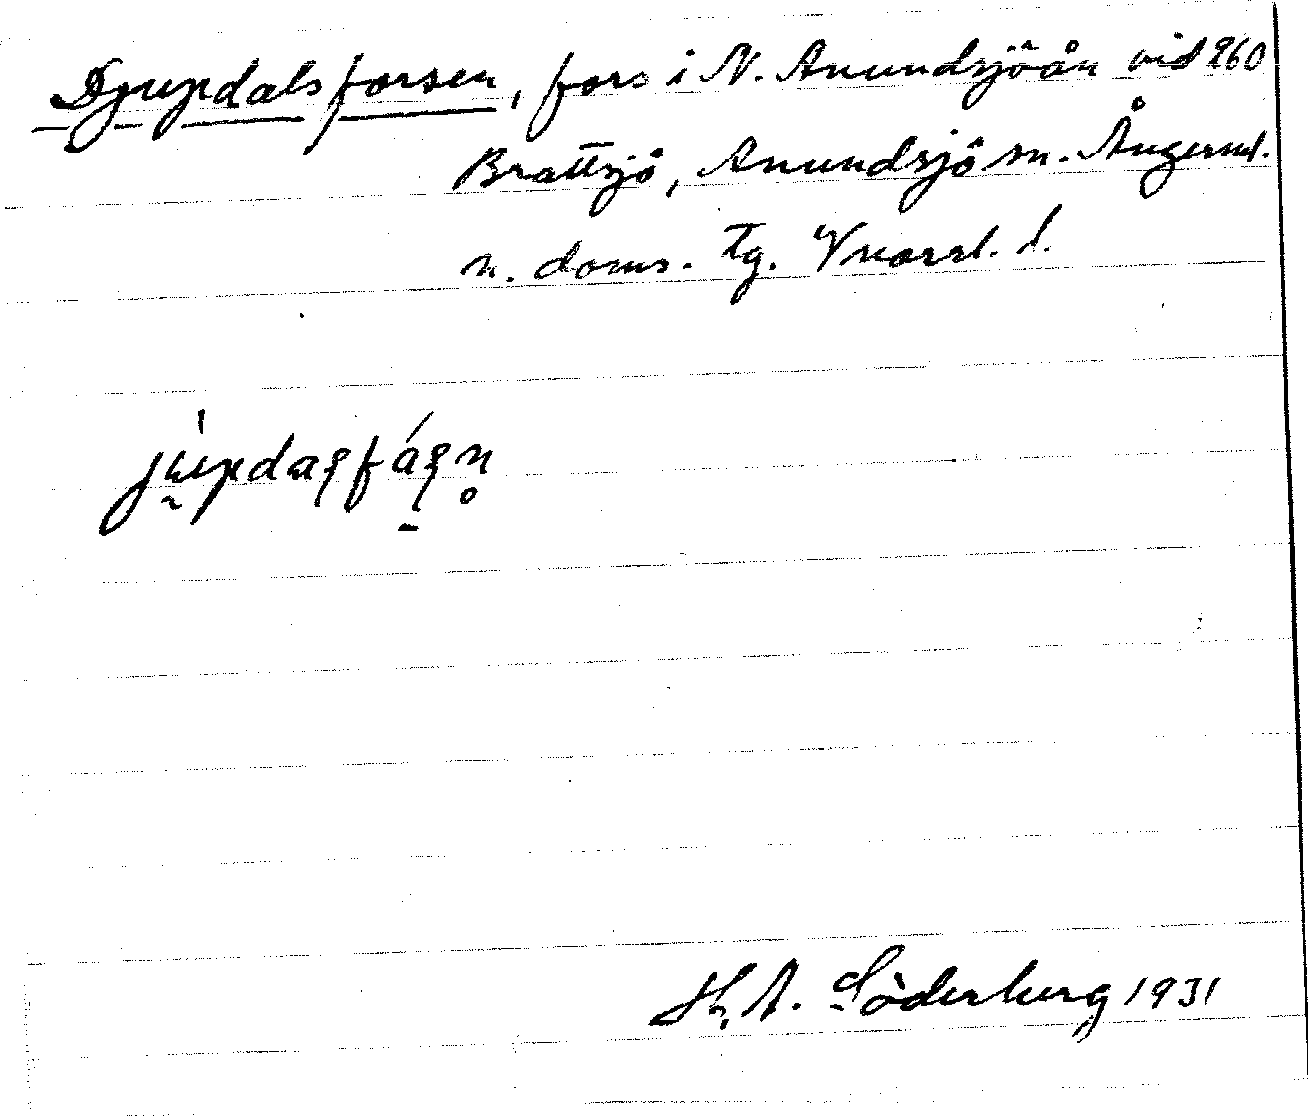 Djupdalsforsen, fors i N. Anundsjöån vid 260
Brattsjö, Anundsjö sn. Ångerml.
n. doms. tg. Vnorrl. l.
H. A. Söderberg 1931